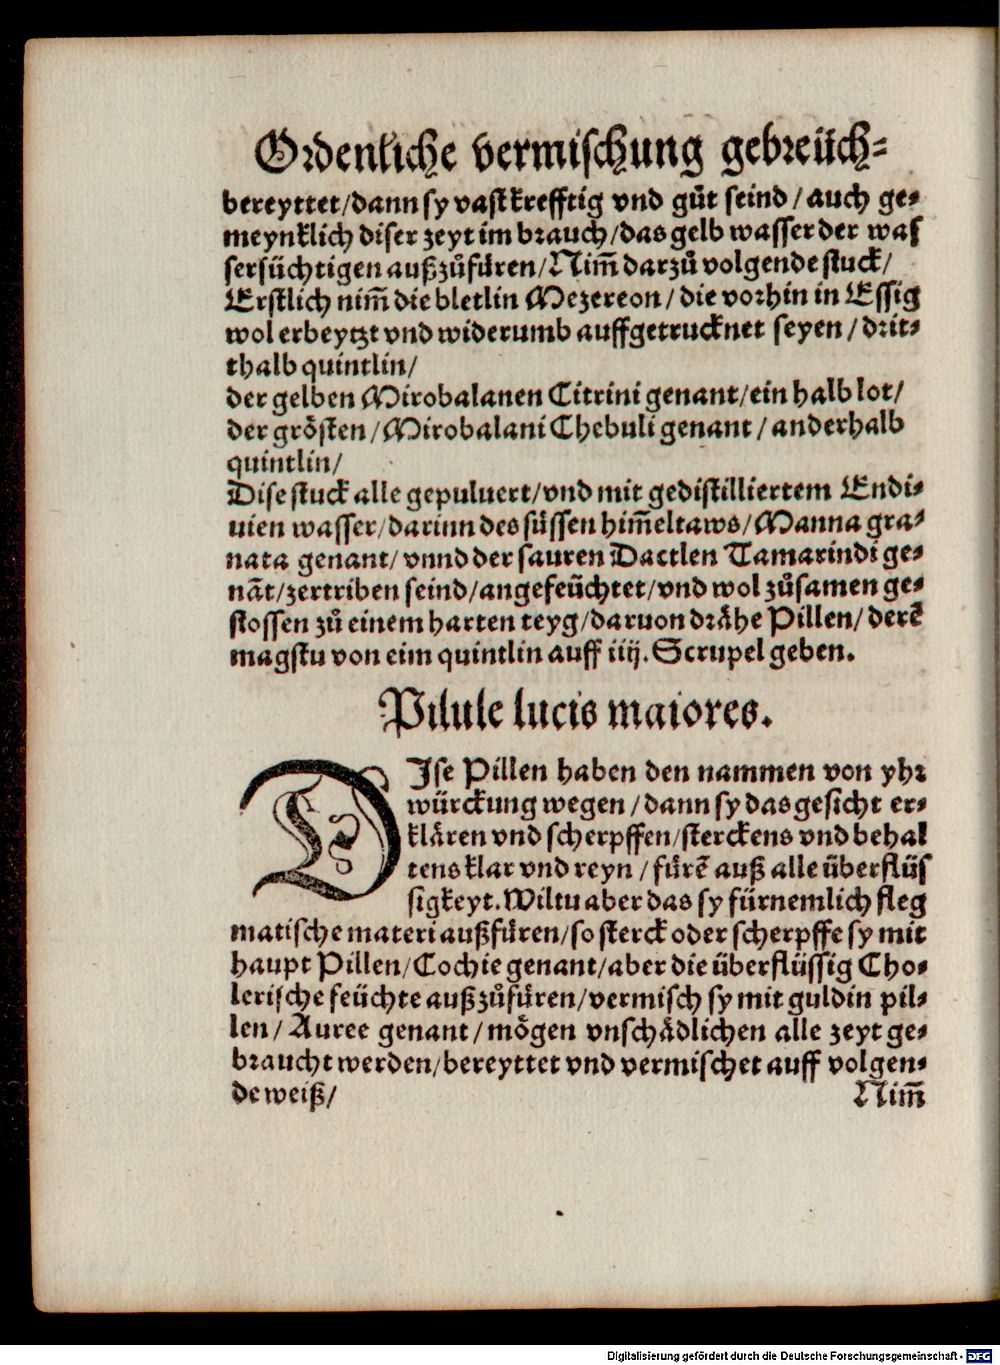 Ordenliche vermischung gebreüch⸗
bereyttet/dann sy vast krefftig vnd gůt seind/auch ge⸗
meynklich diser zeyt im brauch/das gelb wasser der was
sersüchtigen außzůfüren/Nim̄ darzů volgende stuck/
Erstlich nim̄ die bletlin Mezereon/die vorhin in Essig
wol erbeytzt vnd widerumb auffgetrucknet seyen/drit⸗
thalb quintlin/
der gelben Mirobalanen Citrini genant/ein halb lot/
der grösten/Mirobalani Chebuli genant/anderhalb
quintlin/
Dise stuck alle gepuluert/vnd mit gedistilliertem Endi⸗
uien wasser/darinn des süssen him̄eltaws/Manna gra⸗
nata genant/vnnd der sauren Dactlen Tamarindi ge⸗
nāt/zertriben seind/angefeüchtet/vnd wol zůsamen ge⸗
stossen zů einem harten teyg/daruon dråhe Pillen/derē
magstu von eim quintlin auff iiij. Scrupel geben.
Pilule lucis maiores.
DIse Pillen haben den nammen von yhr
würckung wegen/dann sy das gesicht er⸗
klären vnd scherpffen/sterckens vnd behal
tens klar vnd reyn/fürē auß alle überflüs
sigkeyt. Wiltu aber das sy fürnemlich fleg
matische materi außfüren/so sterck oder scherpffe sy mit
haupt Pillen/Cochie genant/aber die überflüssig Cho⸗
lerische feüchte außzůfüren/vermisch sy mit guldin pil⸗
len/Auree genant/mögen vnschädlichen alle zeyt ge⸗
braucht werden/bereyttet vnd vermischet auff volgen⸗
de weiß/
Nim̄
Digitalisierung gefördert durch die Deutsche Forschungsgemeinschaft - DFG